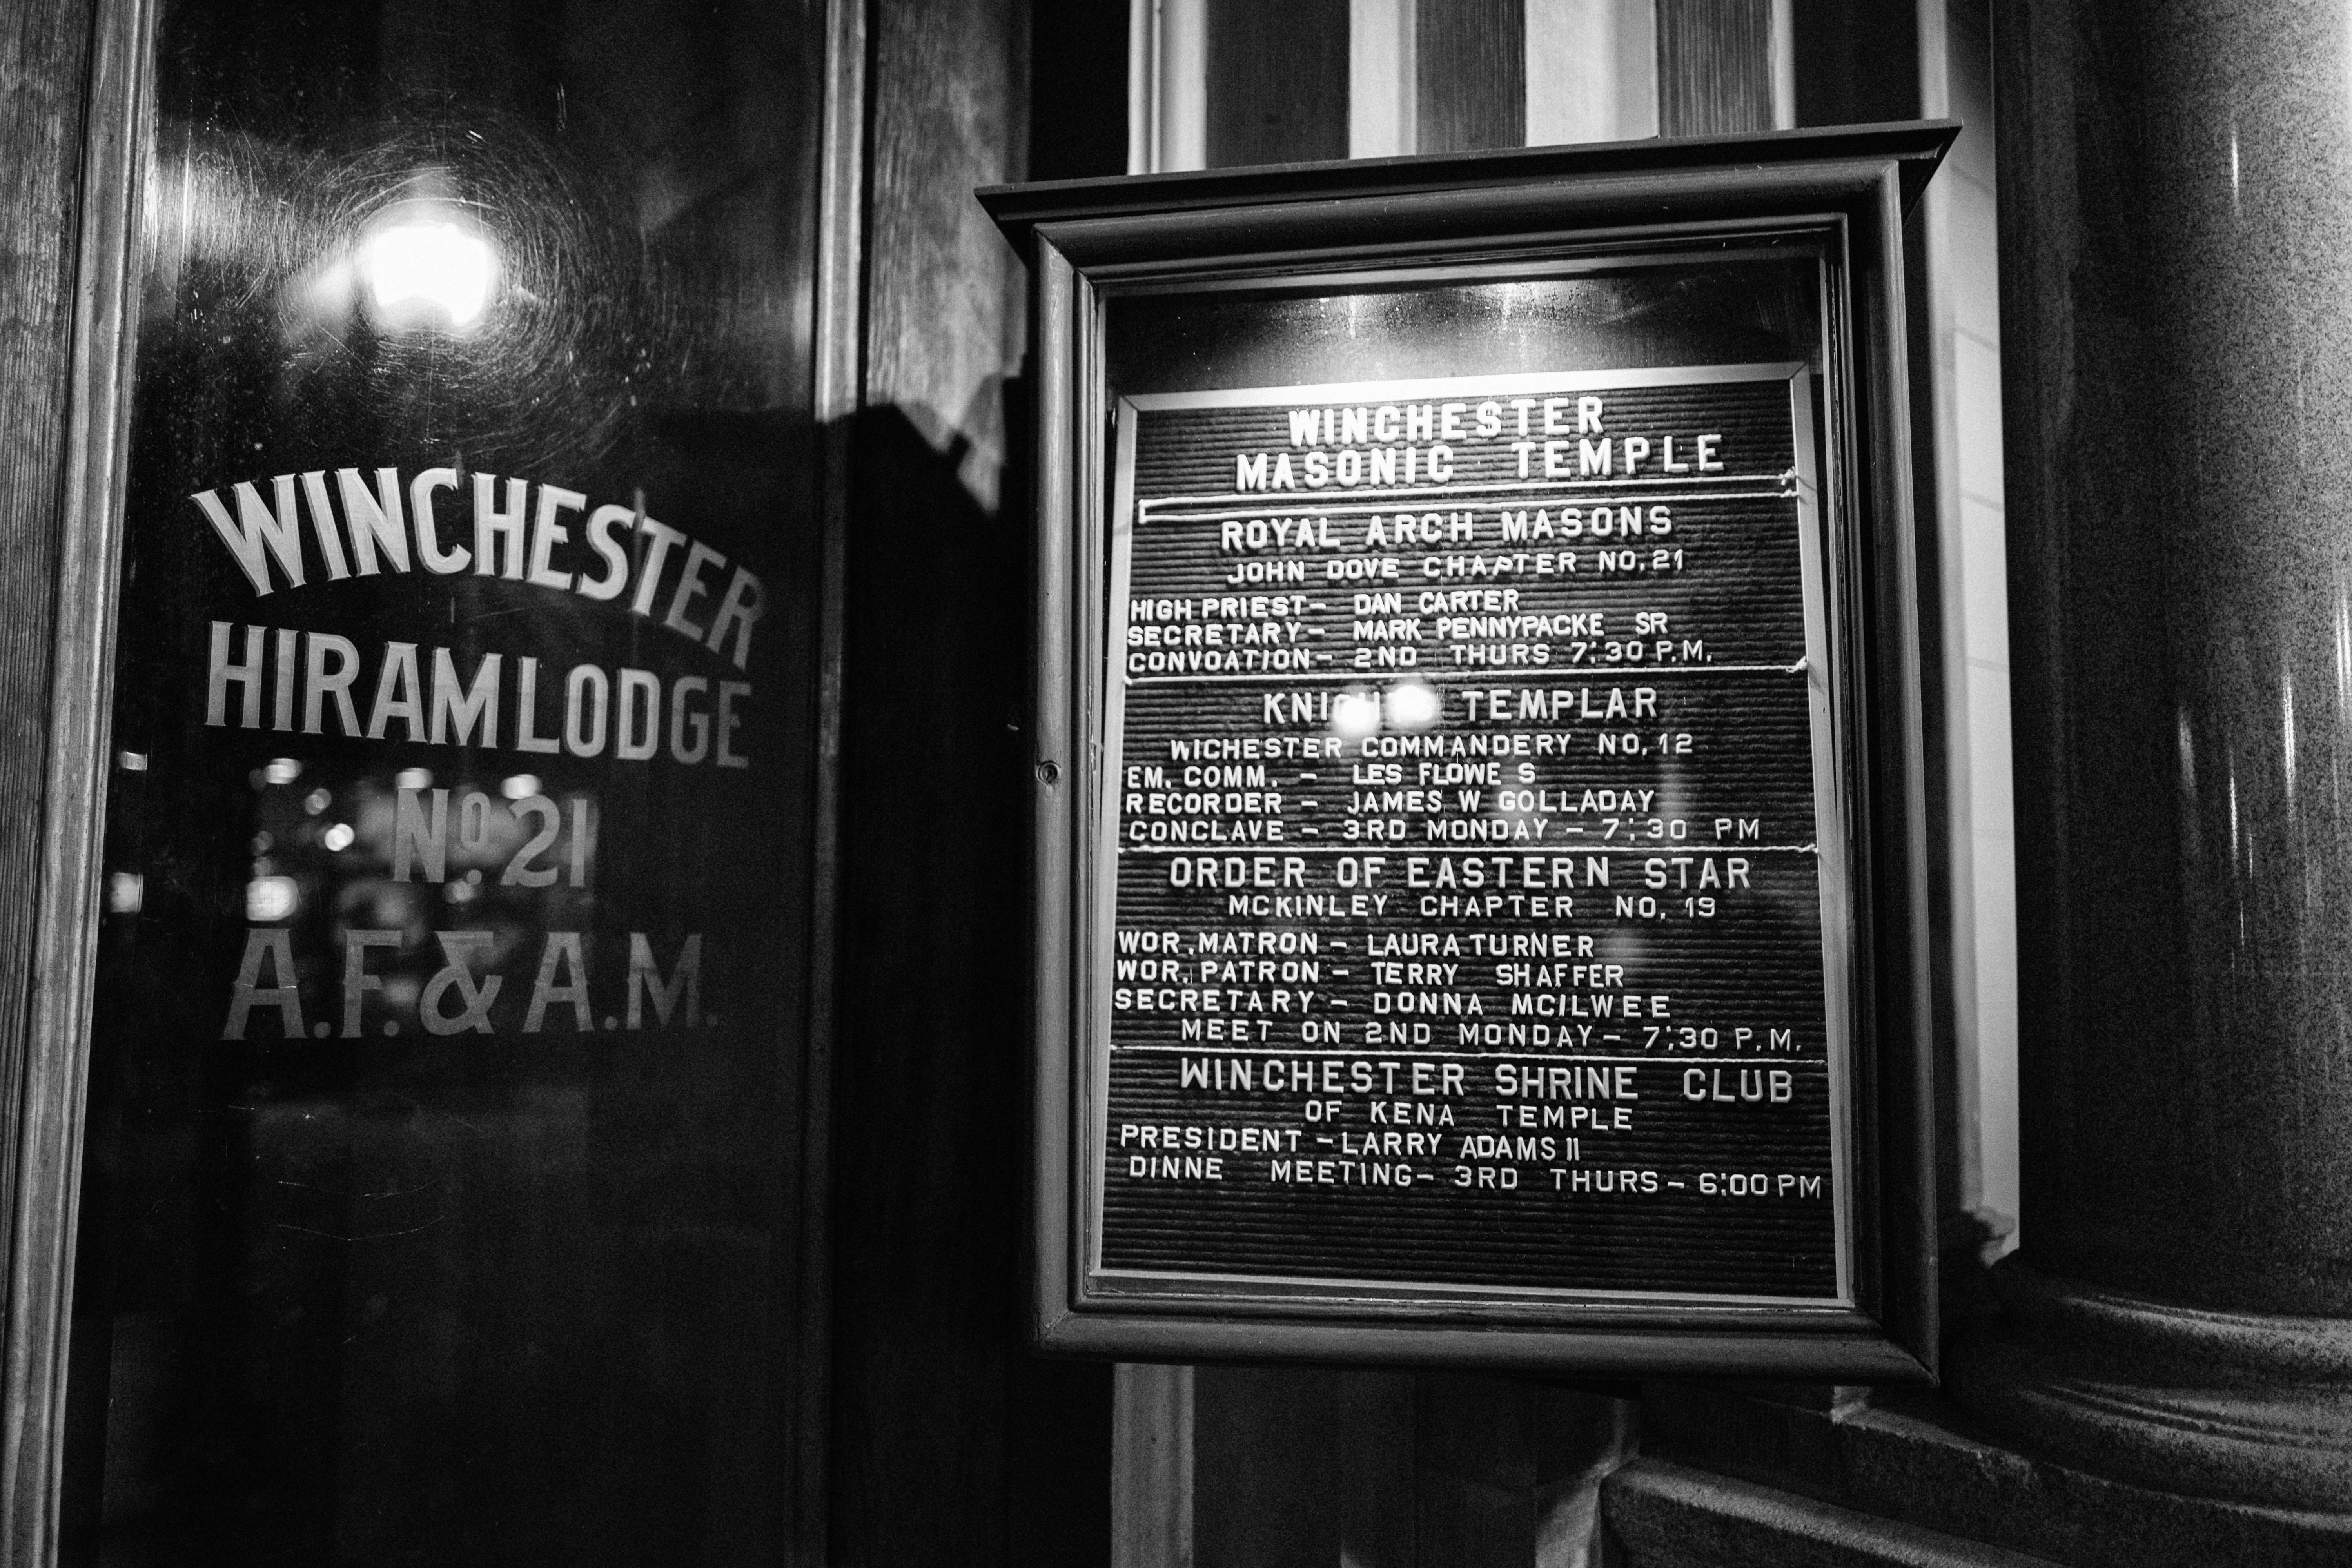 WINCHESTER
HIRAM LODGE
No. 21
A.F. & A.M.
WINCHESTER
MASONIC TEMPLE
ROYAL ARCH MASONS
JOHN DOVE CHAPTER NO. 21
HIGH PRIEST- DAN CARTER
SECRETARY- MARK PENNYPACKE SR
CONVOATION- 2ND THURS 7:30 P.M.
TEMPLAR
WICHESTER COMMANDERY NO. 12
EM. COMM. - LES FLOWE S
RECORDER - JAMES W GOLLADAY
CONCLAVE - 3RD MONDAY - 7:30 PM
ORDER OF EASTERN STAR
MCKINLEY CHAPTER NO. 19
WOR. MATRON - LAURA TURNER
WOR. PATRON - TERRY SHAFFER
SECRETARY - DONNA MCILWEE
MEET ON 2ND MONDAY - 7:30 P.M.
WINCHESTER SHRINE CLUB
OF KENA TEMPLE
PRESIDENT - LARRY ADAMS II
DINNE MEETING- 3RD THURS - 6:00 PM